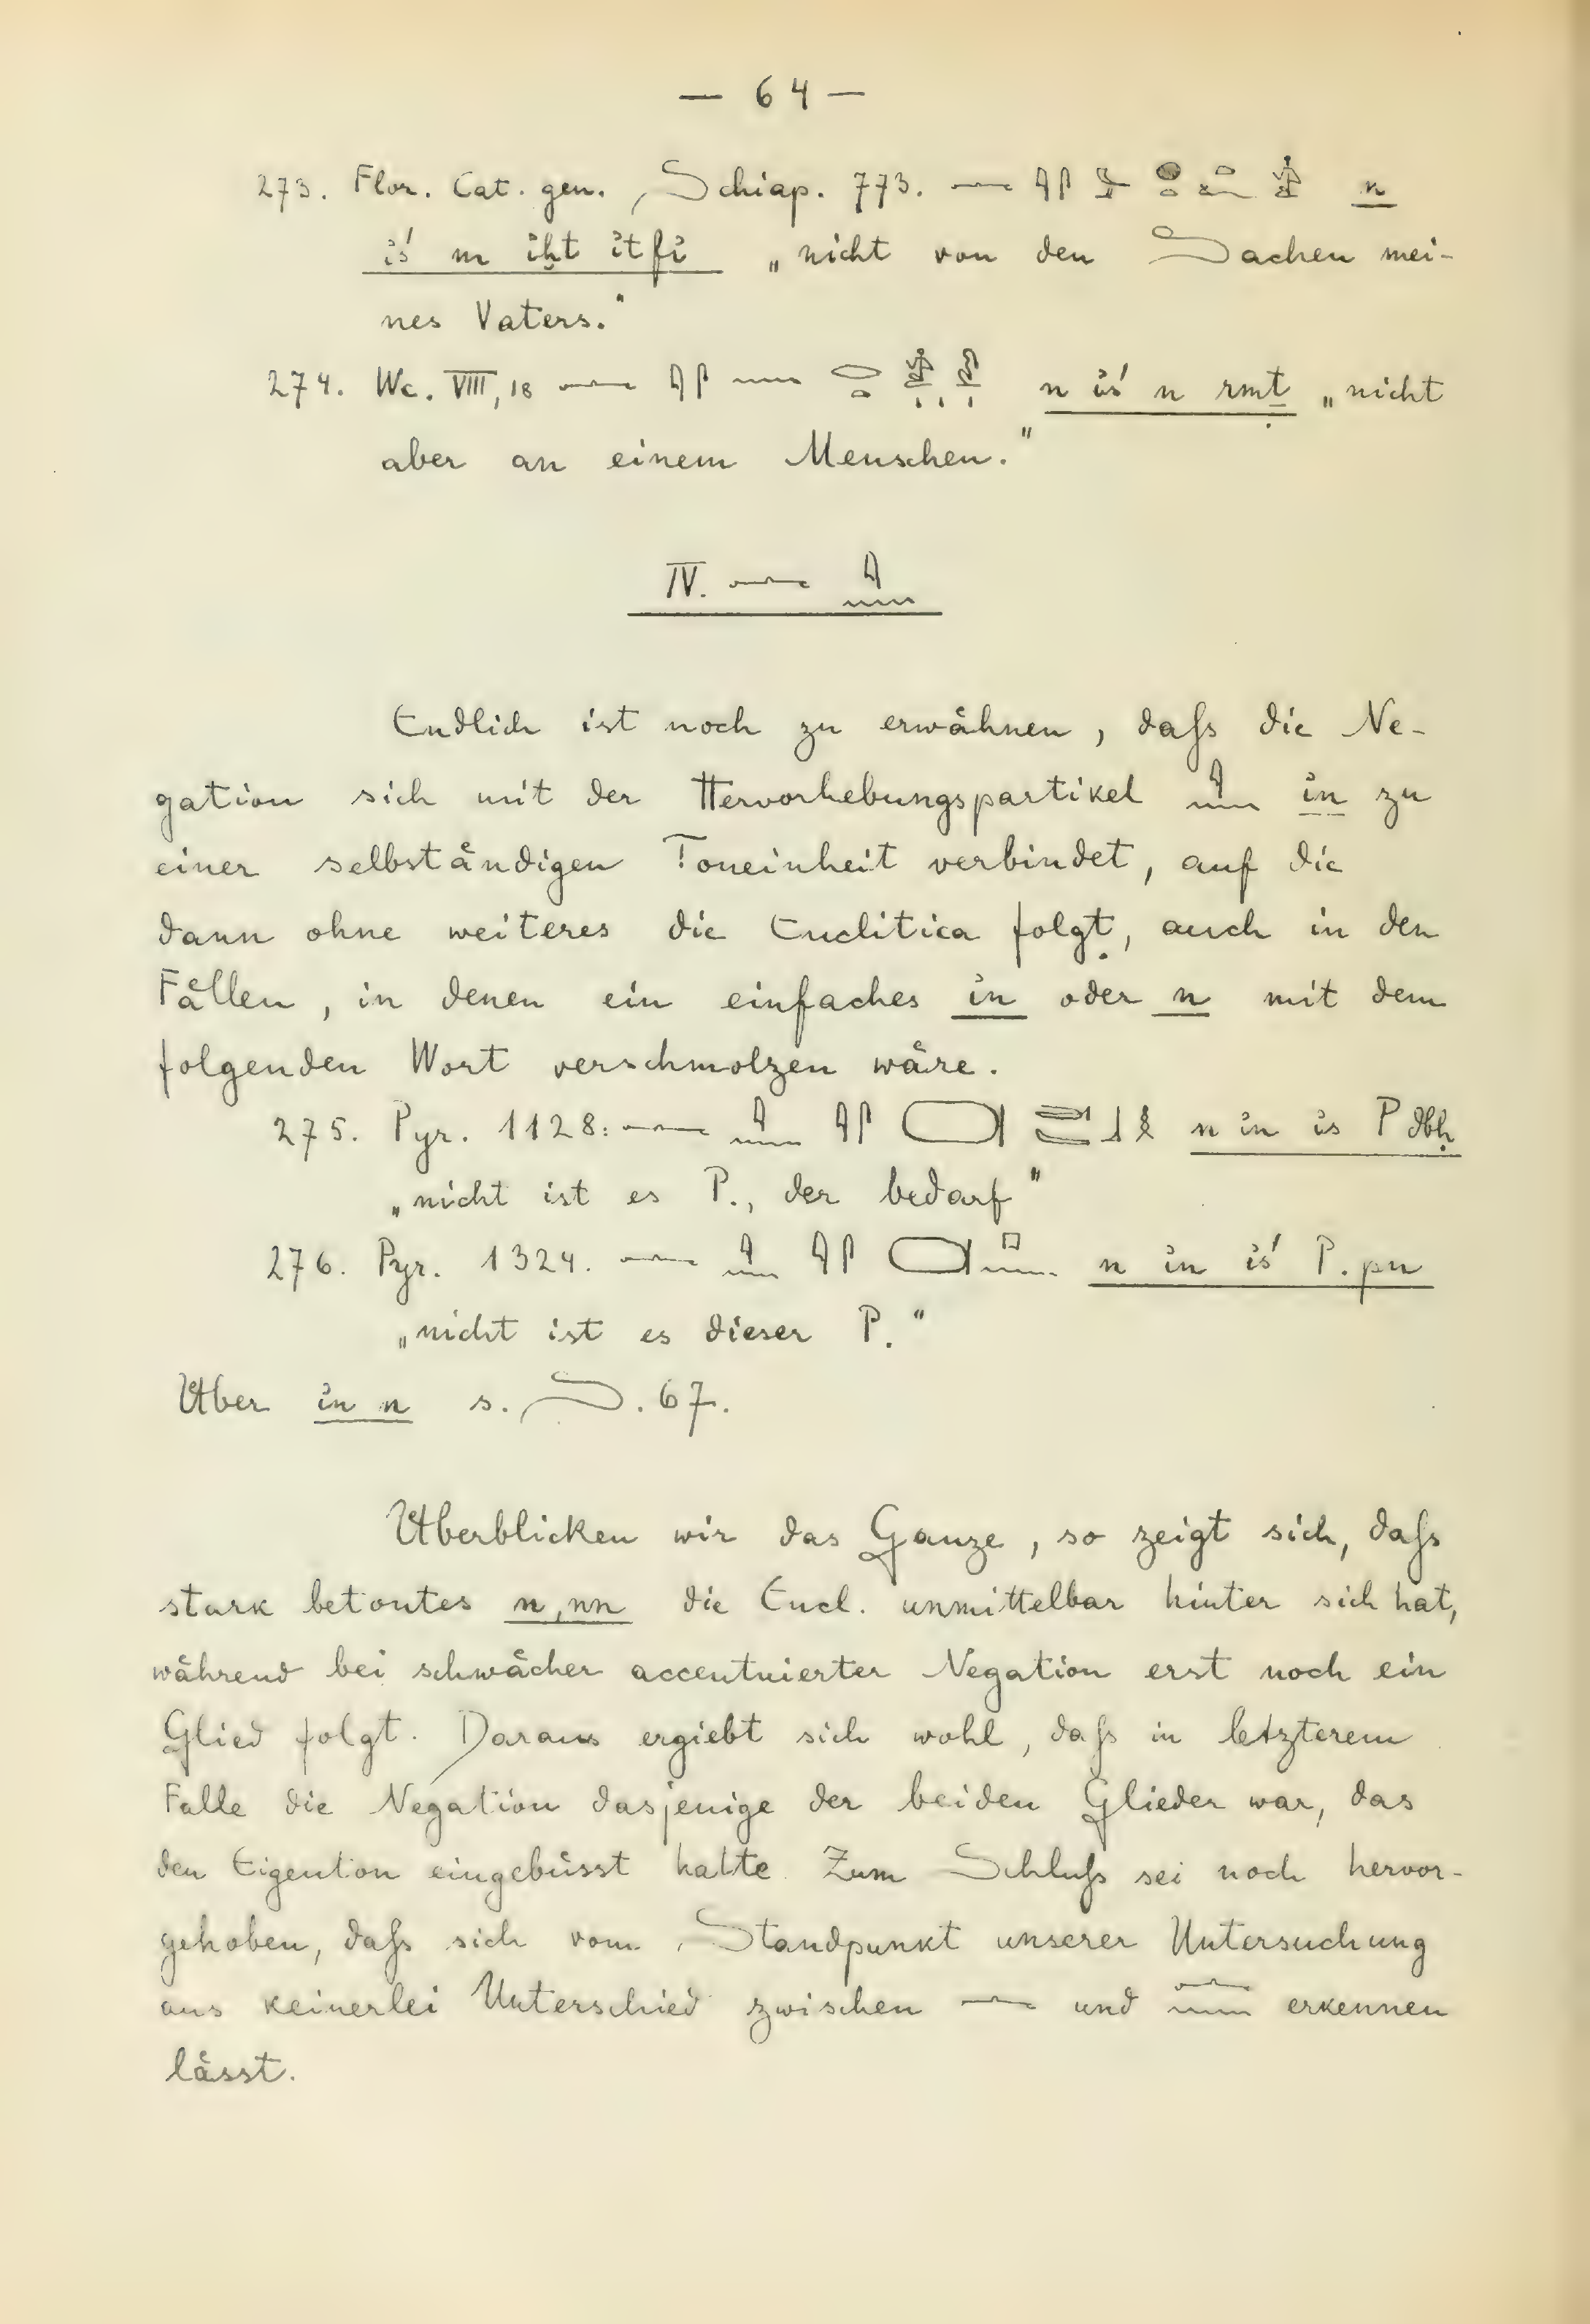 — 64 —
273. Flor. Cat. gen., Schiap. 773. 𓂜 𓇋𓋴 n
iś m iḫt itfi „nicht von den Sachen mei-
nes Vaters.“
274. Wc. VIII, 18 𓂜 𓇋𓋴 𓈖 𓂋𓏏 n iś n rmṯ „nicht
aber an einem Menschen.“
IV. 𓂜 𓇋𓈖
Endlich ist noch zu erwähnen, daſs die Ne-
gation sich mit der Hervorhebungspartikel 𓇋𓈖 in zu
einer selbständigen Toneinheit verbindet, auf die
dann ohne weiteres die Enclitica folgt, auch in den
Fällen, in denen ein einfaches in oder n mit dem
folgenden Wort verschmolzen wäre.
275. Pyr. 1128: 𓂜 𓇋𓈖 𓇋𓋴 𓍷 𓃀𓎛 n in is P dbḥ
„nicht ist es P., der bedarf“
276. Pyr. 1324. 𓂜 𓇋𓈖 𓇋𓋴 𓍷 𓊪𓈖 n in iś P. pn
„nicht ist es dieser P.“
Über in n s. S. 67.
Überblicken wir das Ganze, so zeigt sich, daſs
stark betontes n, nn die Encl. unmittelbar hinter sich hat,
während bei schwächer accentuierter Negation erst noch ein
Glied folgt. Daraus ergiebt sich wohl, daſs in letzterem
Falle die Negation dasjenige der beiden Glieder war, das
den Eigenton eingebüsst hatte. Zum Schluſs sei noch hervor-
gehoben, daſs sich vom Standpunkt unserer Untersuchung
aus keinerlei Unterschied zwischen 𓂜 und 𓂜𓈖 erkennen
lässt.